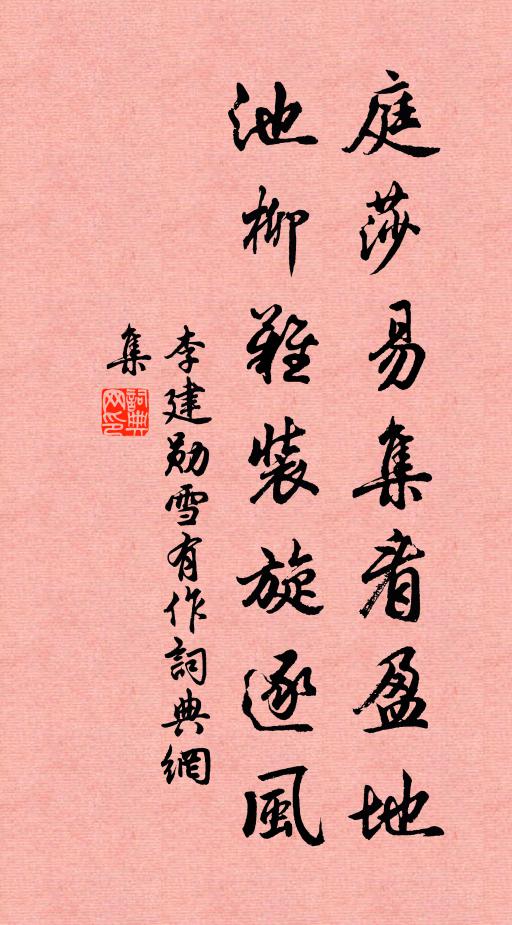 庭莎易集看盈地
池柳難裝旋逐風
李建勛雪有作詞典網
集
詞典網印